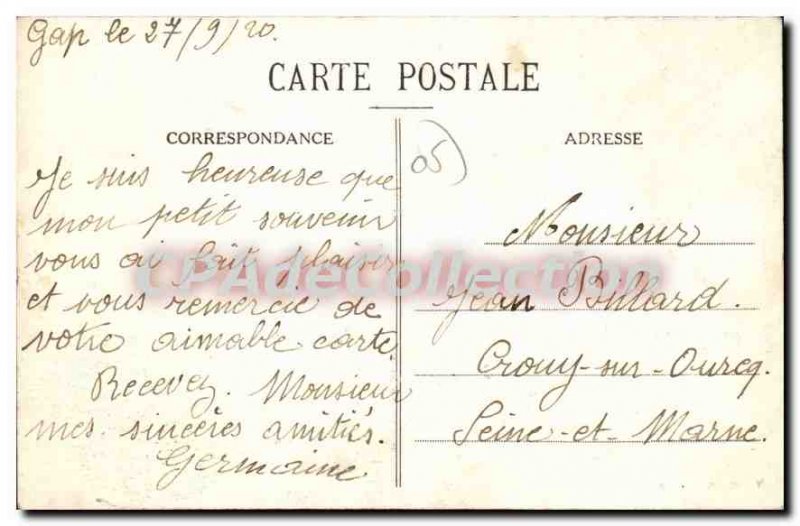 Gap le 27/9/20.
CARTE POSTALE
CORRESPONDANCE
Je suis heureuse que
mon petit souvenir
vous ai fait plaisir
et vous remercie de
votre aimable carte.
Recevez. Monsieur
mes sincères amitiés.
Germaine
05
ADRESSE
Monsieur
Jean Billard.
Crouy-sur-Ourcq.
Seine-et-Marne.
CPAdeCollection